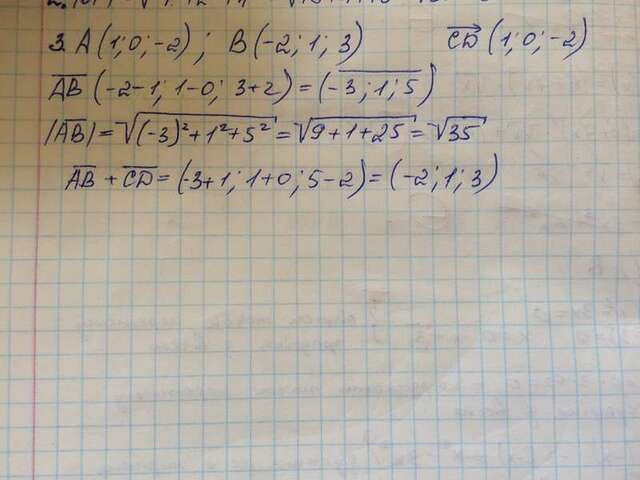 3. A (1; 0; -2); B (-2; 1; 3) CD (1; 0; -2)
AB (-2-1; 1-0; 3+2) = (-3; 1; 5)
|AB| = √((-3)² + 1² + 5²) = √(9+1+25) = √35
AB + CD = (-3+1; 1+0; 5-2) = (-2; 1; 3)